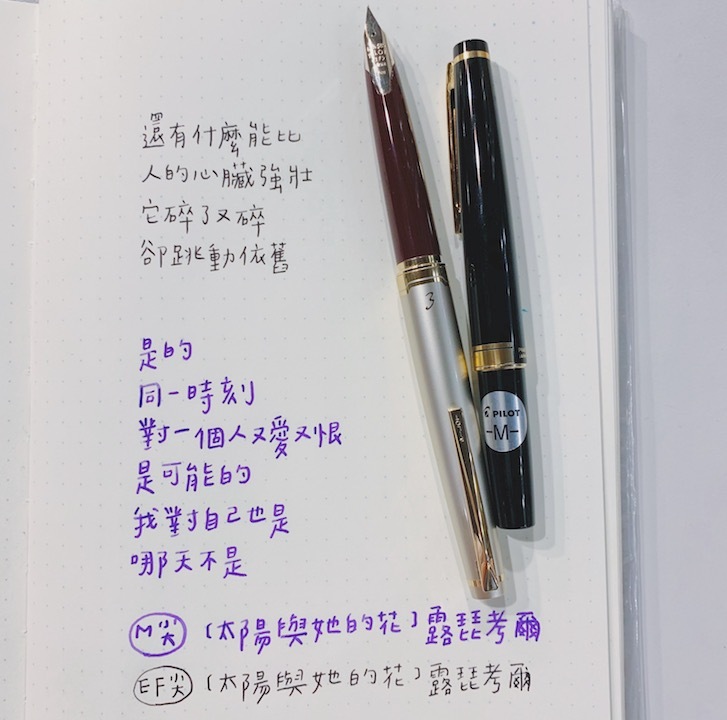 還有什麼能比
人的心臟強壯
它碎了又碎
卻跳動依舊
是的
同一時刻
對一個人又愛又恨
是可能的
我對自己也是
哪天不是
M尖 [太陽與她的花] 露琵考爾
EF尖 [太陽與她的花] 露琵考爾
3
PILOT
-M-